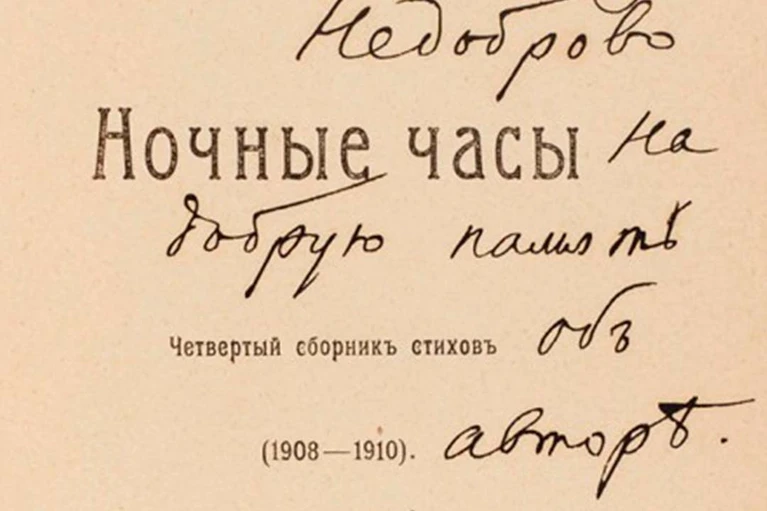 Недоброво
Ночные часы на
добрую память
Четвертый сборникъ стиховъ объ
(1908—1910). авторѣ.